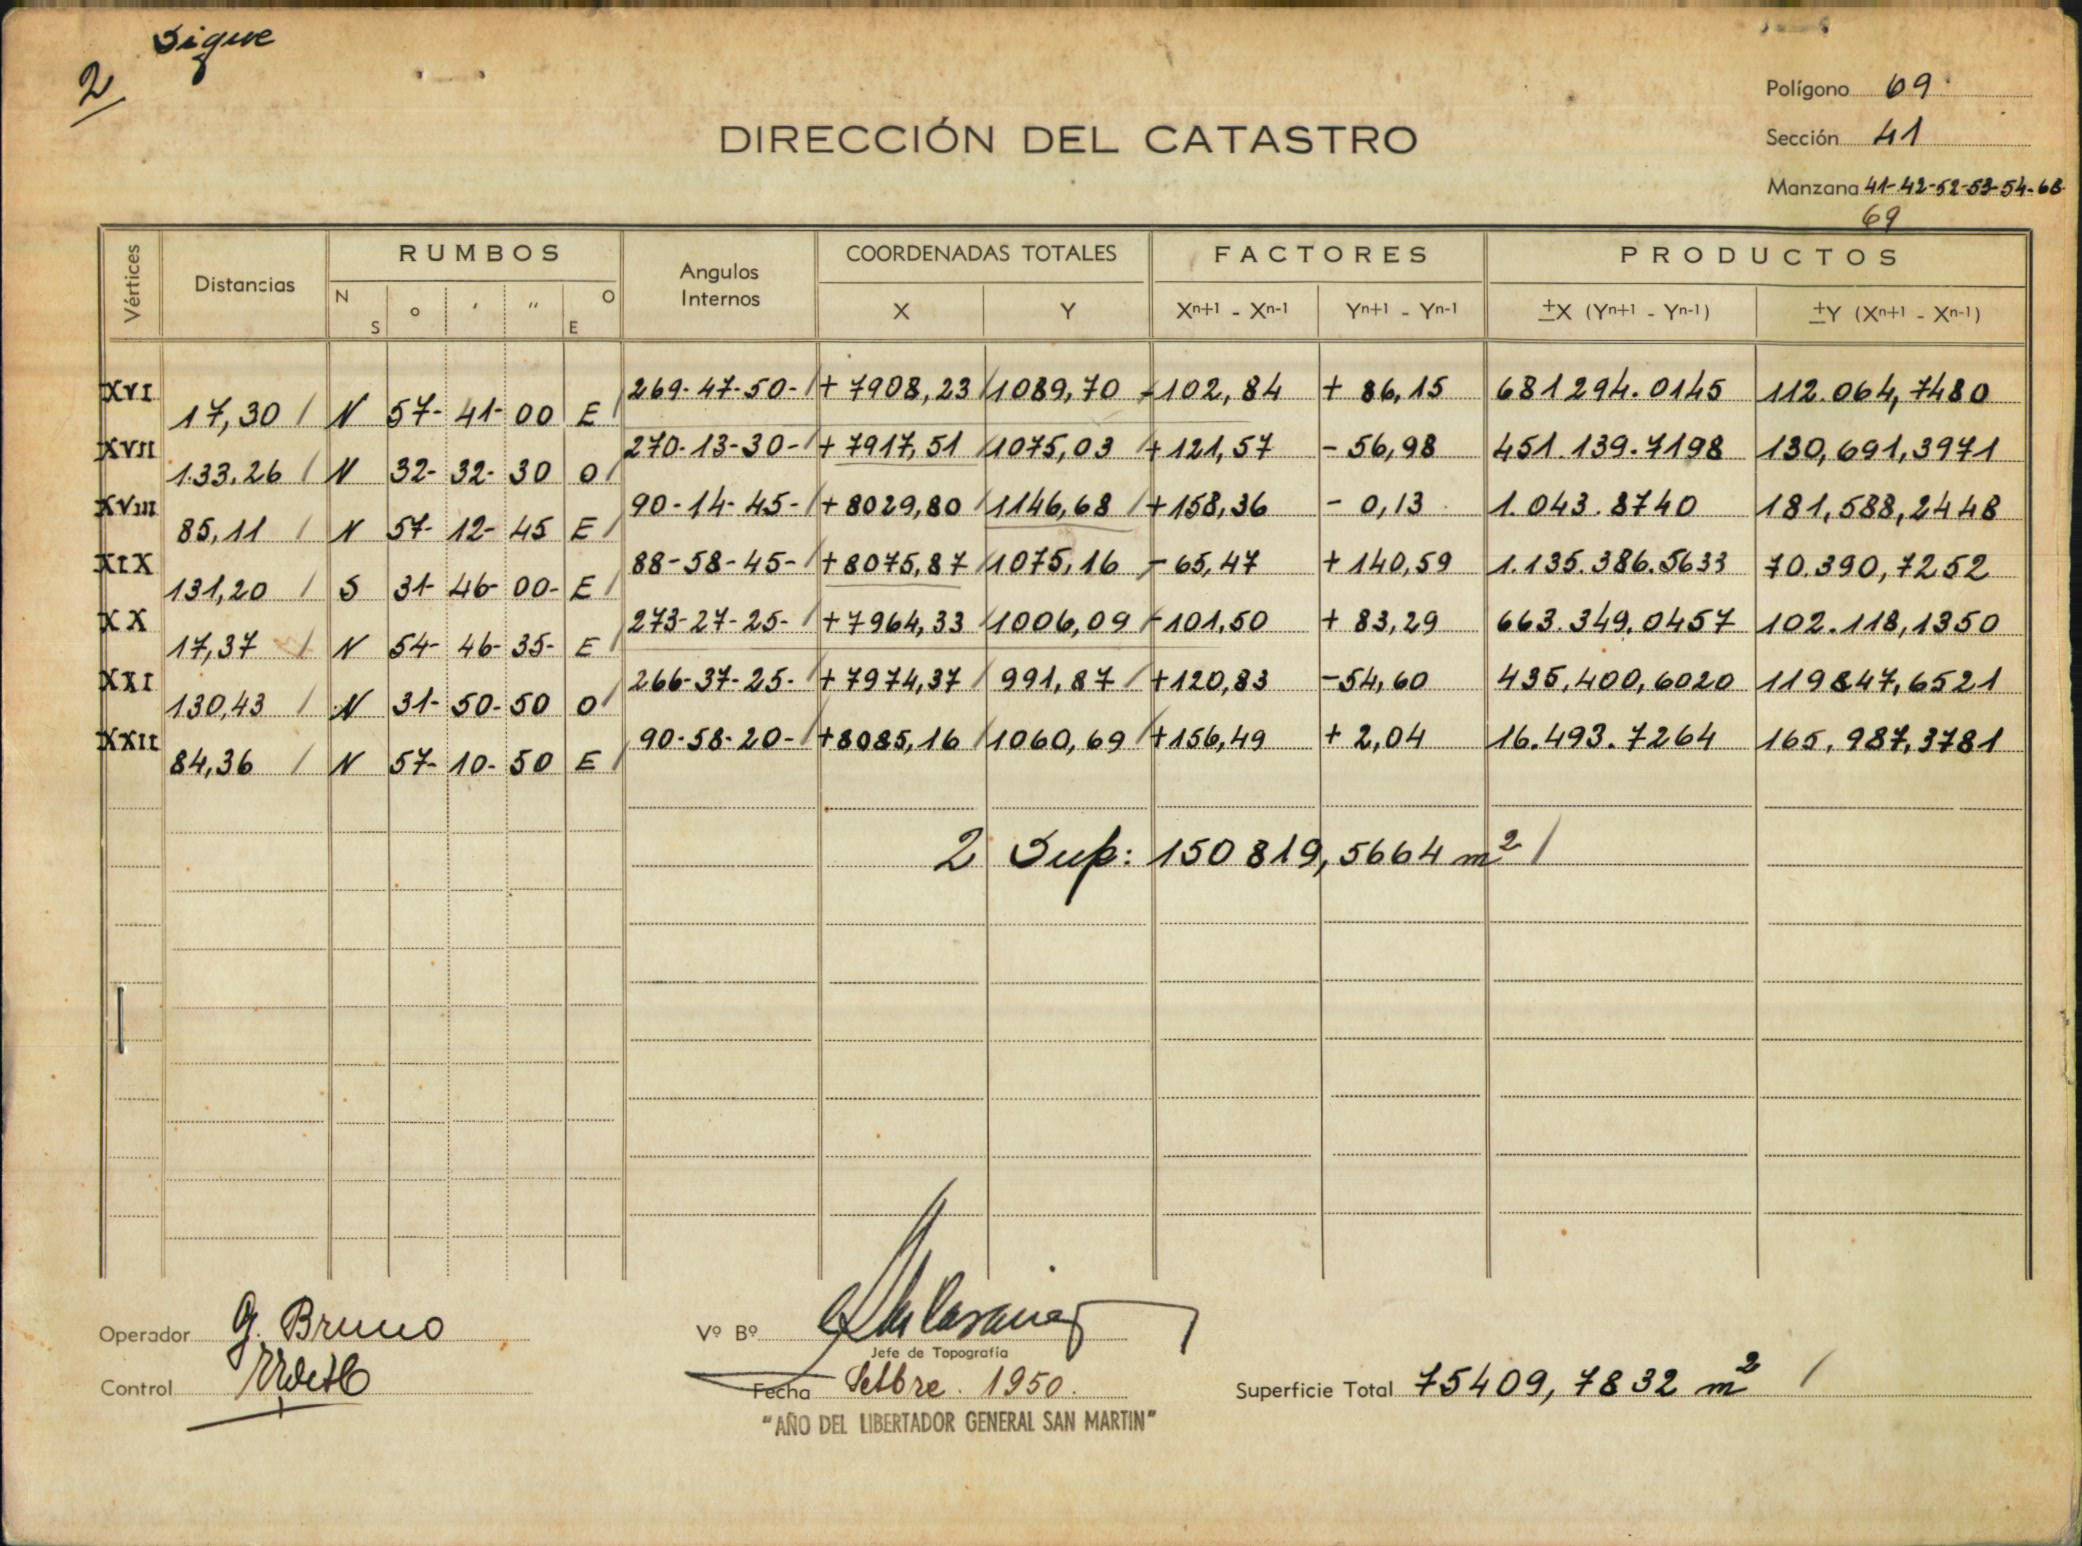 Sigue
2
Polígono 69
DIRECCIÓN DEL CATASTRO
Sección 41
Manzana 41-42-52-53-54-68-
69
Vértices Distancias RUMBOS Angulos Internos COORDENADAS TOTALES FACTORES PRODUCTOS
N S ° ' " O E X Y Xn+1 - Xn-1 Yn+1 - Yn-1 ±X (Yn+1 - Yn-1) ±Y (Xn+1 - Xn-1)
XVI 269-47-50- + 7908,23 1089,70 -102,84 + 86,15 681294.0145 112.064,7480
17,30 N 57- 41- 00 E
XVII 270-13-30- + 7917,51 1075,03 +121,57 - 56,98 451.139.7198 130,691,3971
133.26 N 32- 32- 30 O
XVIII 90-14-45- +8029,80 1146,68 +158,36 - 0,13 1.043.8740 181,588,2448
85,11 N 57- 12- 45 E
XIX 88-58-45- +8075,87 1075,16 -65,47 +140,59 1.135.386.5633 70.390,7252
131,20 S 31- 46- 00- E
XX 273-27-25- +7964,33 1006,09 -101,50 + 83,29 663.349.0457 102.118,1350
17,37 N 54- 46- 35- E
XXI 266-37-25- +7974,37 991,87 +120,83 -54,60 435,400,6020 119847,6521
130,43 N 31- 50- 50 O
XXII 90-58-20- +8085,16 1060,69 +156,49 + 2,04 16.493.7264 165,987,3781
84,36 N 57- 10- 50 E
2 Sup: 150819,5664 m²
Operador G. Bruno
Vº Bº
Jefe de Topografía
Control
Fecha Setbre. 1950.
Superficie Total 75409,7832 m²
"AÑO DEL LIBERTADOR GENERAL SAN MARTIN"